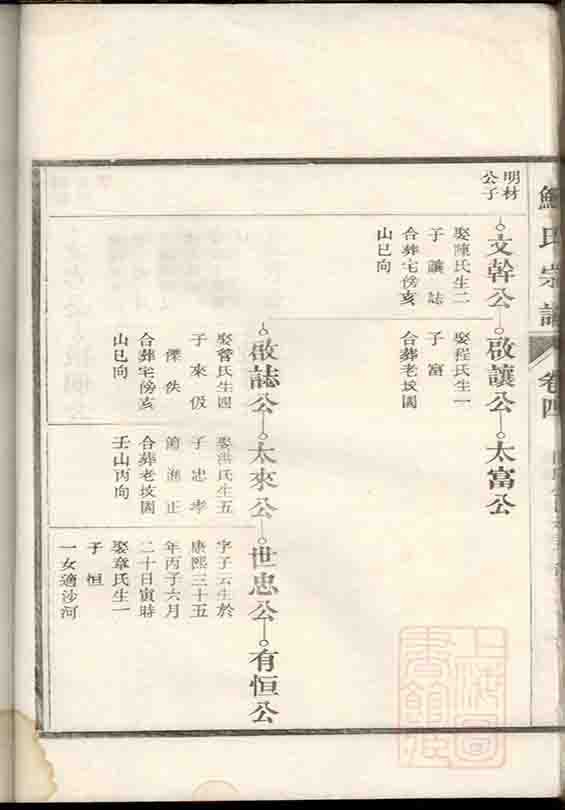 氏宗譜
卷四
明材
公子
文幹公
娶陳氏生二
子讓誌
合葬宅傍亥
山巳向
啟讓公
娶程氏生一
子富
合葬老坟園
太富公
啟誌公
娶曾氏生四
子來伋
傑佚
合葬宅傍亥
山巳向
太來公
娶洪氏生五
子忠孝
正
合葬老坟園
壬山丙向
世忠公
字子云生於
康熙三十五
年丙子六月
二十日寅時
娶章氏生一
子恒
一女適沙河
有恒公
上海圖
書館藏